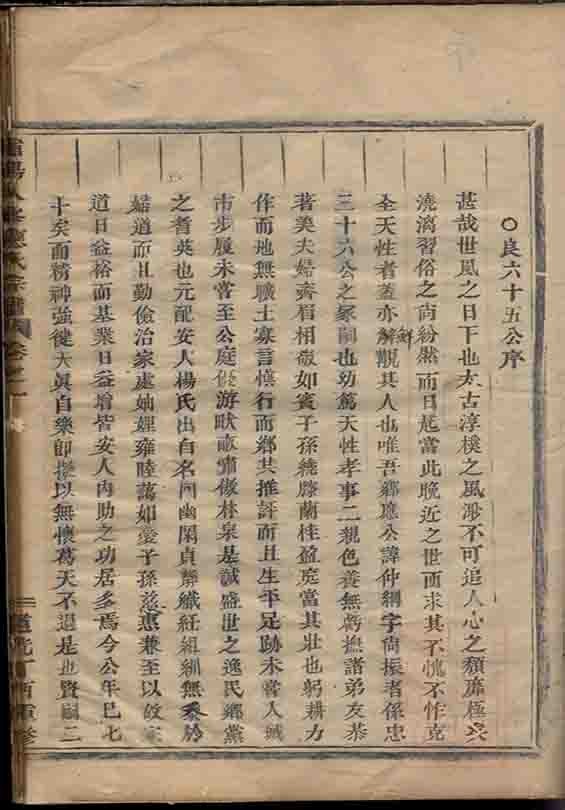 ○良六十五公序
甚哉世風之日下也太古淳樸之風渺不可追人心之頹靡極矣
澆漓習俗之尚紛然而日起當此晚近之世而求其不愧不怍克
全天性者蓋亦鮮覯其人也唯吾鄉應公諱仲綱字尚振者係忠
三十六公之冢嗣也幼篤天性孝事二親色養無虧撫諸弟友恭
著美夫婦齊眉相敬如賓子孫繞膝蘭桂盈庭當其壯也躬耕力
作而地無曠土寡言慎行而鄉共推評而且生平足跡未嘗入城
市步履未嘗至公庭優游畎畝嘯傲林泉是誠盛世之逸民鄉黨
之耆英也元配安人楊氏出自名門幽閑貞靜織紝組紃無忝於
婦道而且勤儉治家處妯娌雍睦藹如愛子孫慈惠兼至以故家
道日益裕而基業日益增皆安人內助之功居多焉今公年已七
十矣而精神強健天真自樂即擬以無懷葛天不過是也賢嗣二
氏宗譜 卷之一
道光丁酉重修